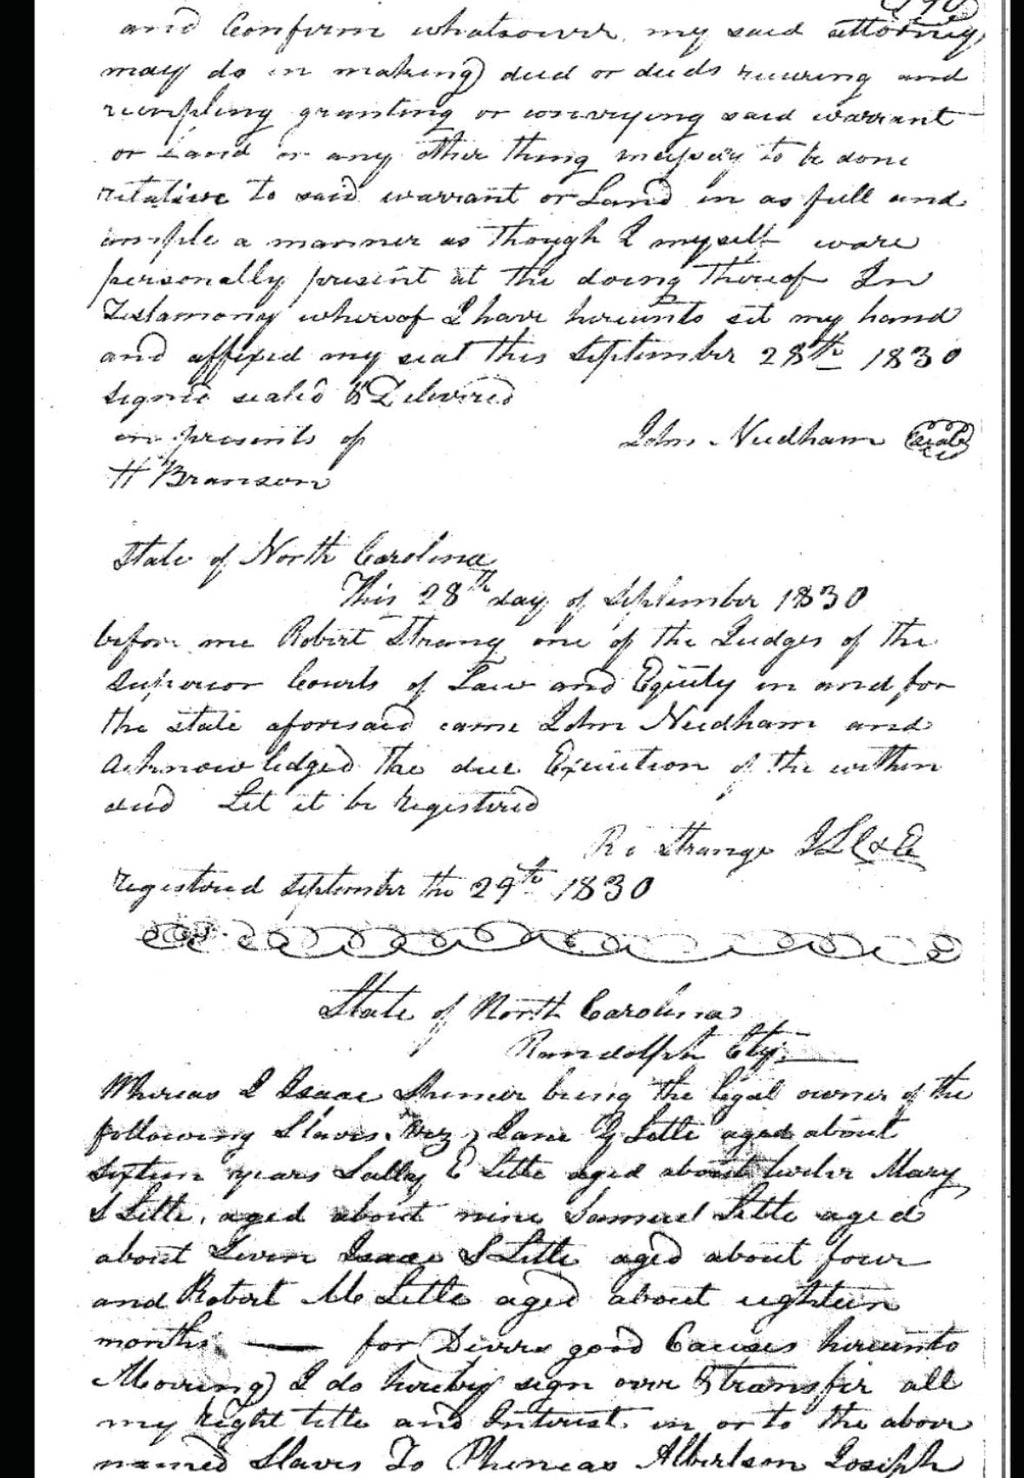 and Confirm whatsoever my said attorney
may do in making deed or deeds receiving and
granting or conveying said warrant
or Land or any other thing to be done
relative to said warrant or Land in as full and
ample a manner as though I myself ware
personally present at the doing thereof In
Testamony whereof I have hereunto set my hand
and affixed my seal this September 28th 1830
signed sealed & Delivered
in presents of
John Needham seal
H Branson
State of North Carolina
This 28th day of September 1830
before me Robert Strang one of the Judges of the
Superior Courts of Law and Equity in and for
the state aforesaid came John Needham and
acknowledged the due Execution of the within
deed Let it be registered
Ro Strange J L C & E
registered september the 29th 1830
State of North Carolina
Randolph Cty
Whereas I Isaac being the legal owner of the
following Slaves Viz, Jane Y Little aged about
sixteen years Sally E Little aged about twelve Mary
S Little, aged about nine Samuel Little aged
about Seven Isaac S Little aged about four
and Robert Mc Little aged about eighteen
months for Divers good Causes hereunto
Moving I do hereby sign over & transfer all
my Right title and Interest in or to the above
named Slaves To Phineas Albertson Joseph